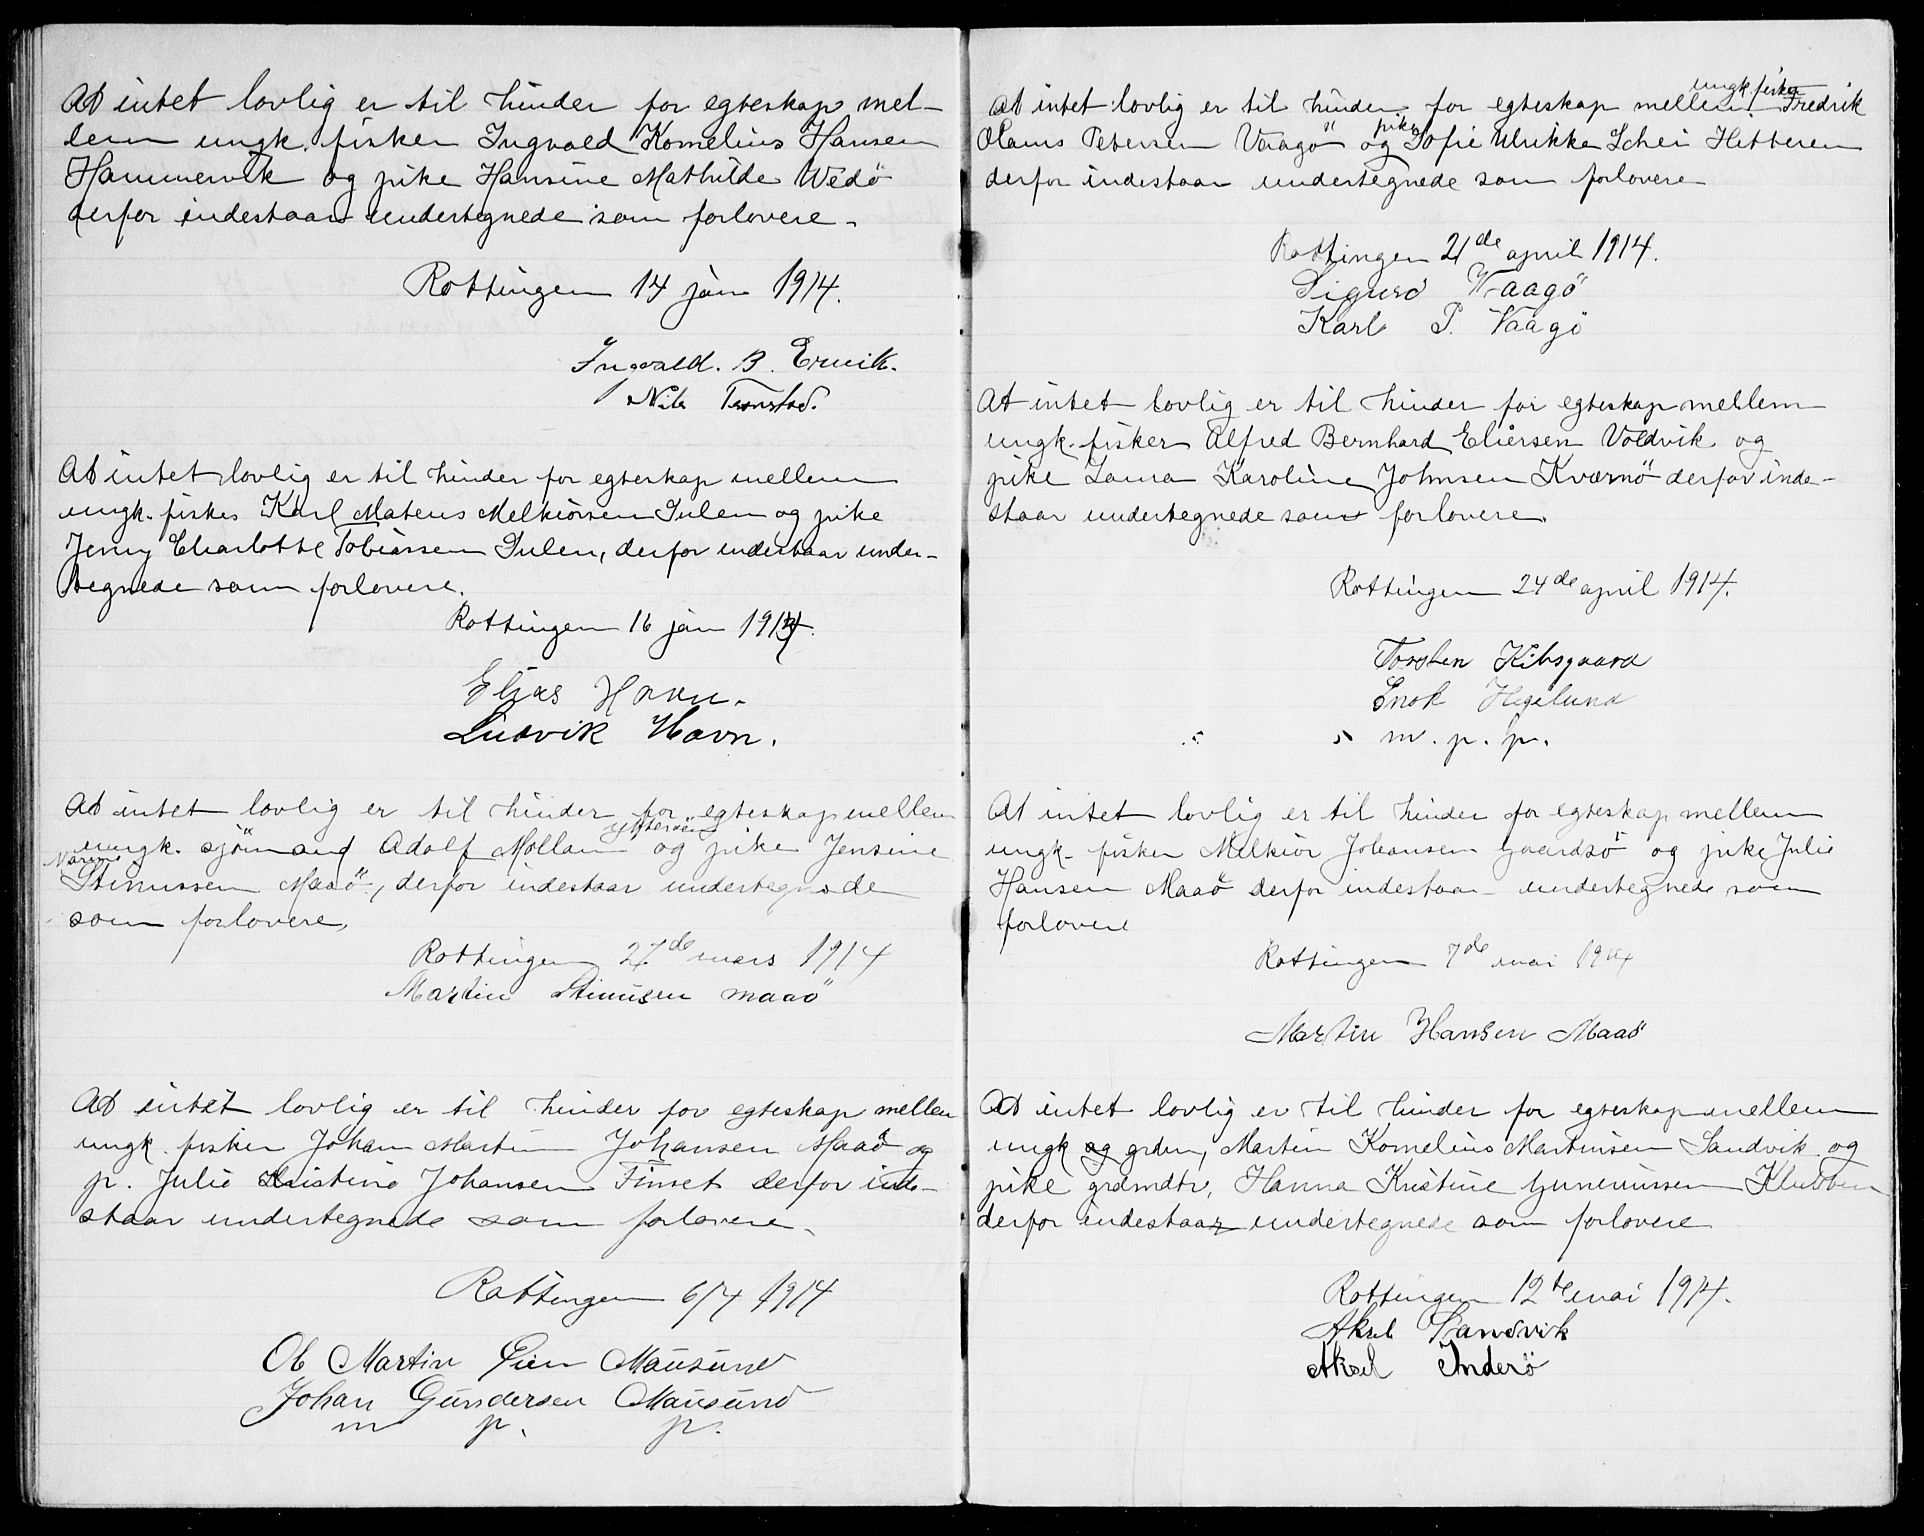 At intet lovlig er til hinder for egteskap mel-
lem ungk. fisker Ingvald Kornelius Hansen
Hammervik og pike Hansine Mathilde Wedö
derfor indestaar undertegnede som forlovere.
Rottingen 14 jan 1914.
Ingvald. B. Ervik.
Nils
At intet lovlig er til hinder for egteskap mellem
ungk. fisker Karl Mateus Melkiorsen Sulen og pike
Jenny Charlotte Tobiassen Sulen, derfor indestaar under-
tegnede som forlovere.
Rottingen 16 jan 1914.
Elias Havn.
Ludvik Havn.
At intet lovlig er til hinder for egteskap mellem
ungk. sjömand Adolf Mollan og pike Jensine
Stinussen Maaö, derfor indestaar undertegnede
som forlovere,
Rottingen 27de mars 1914
Martin Stinusen maaö
At intet lovlig er til hinder for egteskap mellem
ungk. fisker Johan Martin Johansen Maaö og
p. Julie Kristine Johansen Finset derfor inde-
staar undertegnede som forlovere.
Rottingen 6/4 1914
Ob Martin Mausund
Johan Gundersen Mausund
m p. p.
ungk. fisker
At intet lovlig er til hinder for egteskap mellem Fredrik
pike
Olaus Petersen Vaagö og Sofie Ulrikke Schei Hitteren
derfor indestaar undertegnede som forlovere
Rottingen 21de april 1914.
Sigurd Vaagö
Karl P. Vaagö
At intet lovlig er til hinder for egteskap mellem
ungk. fisker Alfred Bernhard Eliersen Voldvik og
pike Laura Karoline Johnsen Kværnö derfor inde-
staar undertegnede som forlovere.
Rottingen 24de april 1914.
Torsten Kibsgaard
Enok Hegelund
m. p. p.
At intet lovlig er til hinder for egteskap mellem
ungk. fisker Melkior Johansen Gaardsö og pike Julie
Hansen Maaö derfor indestaar undertegnede som
forlovere
Rottingen 7de mai 1914
Martin Hansen Maaö
At intet lovlig er til hinder for egteskap mellem
ungk og grdm, Martin Kornelius Martinsen Sandvik og
pike grdmdtr, Hanna Kristine Gunerussen Klubben
derfor indestaar undertegnede som forlovere
Rottingen 12te mai 1914.
Aksel Sandvik
Aksel Inderö